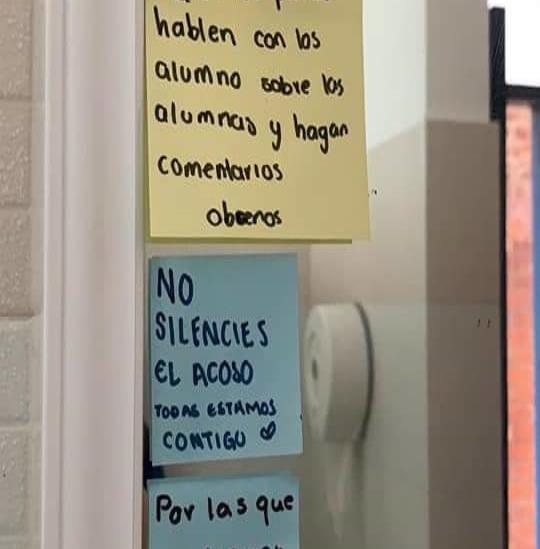 hablen con los
alumno sobre los
alumnas y hagan
comentarios
obcenos
NO
SILENCIES
EL ACOSO
TODAS ESTAMOS
CONTIGO
Por las que